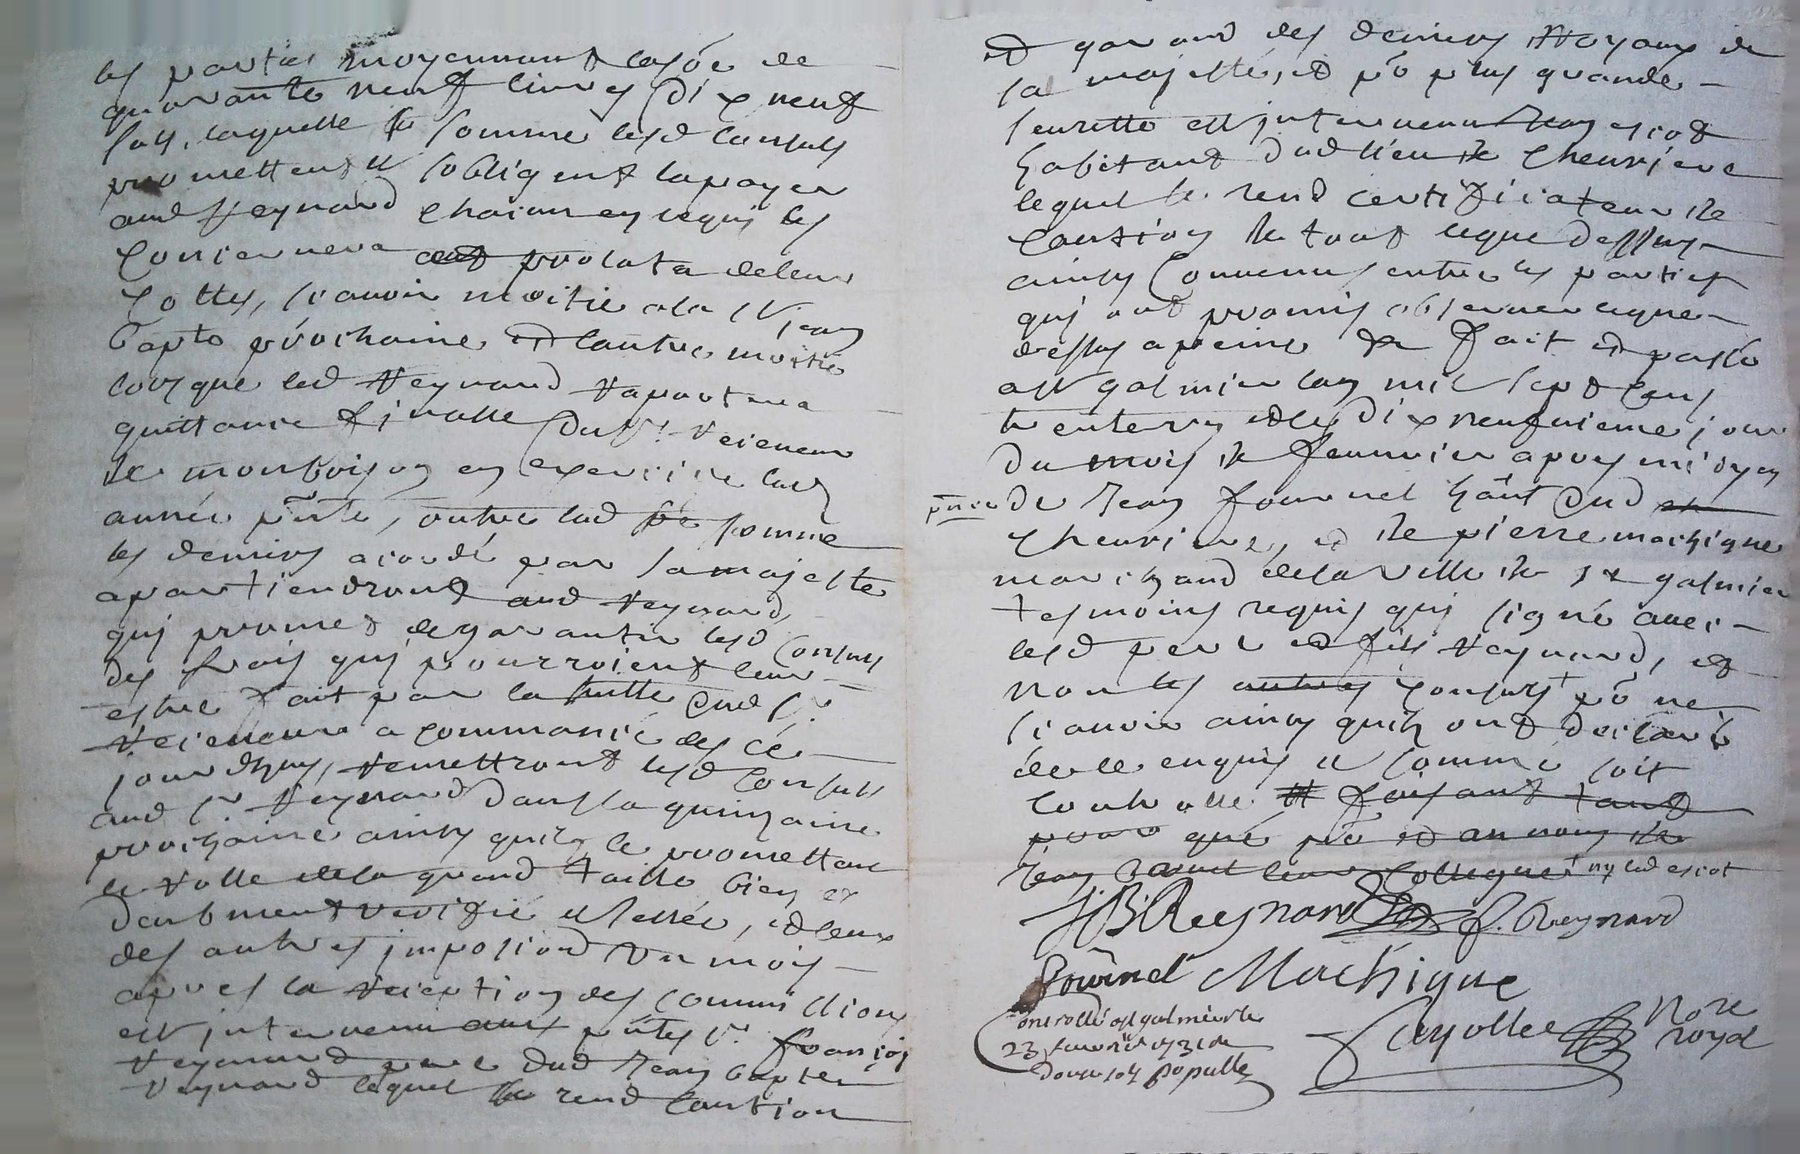 les parties moyennant la so͞e de
quarante neuf livres dix neuf
sols, laquelle somme lesd consuls
promettent et sobligent la payer
aud Reynard chacun en ce qui les
concernera au prolata de leur
cottes, scavoir moitié a la St Jean
Bapte prochaine et lautre moitié
lorsque led Reynard raportera
quittance finalle du Sr receveur
de montbrison en exercice lad
année p͞nte, outre lad somme
les deniers acordé par sa majesté
apartiendront aud Reynard,
qui promet de garantir lesd consuls
des frais qui pourroient leur
estre fait par la suitte dud Sr
receveur a commancé des ce
jourdhuy, remettront lesd consuls
aud Sr Reynard dans la quinzaine
prochaine ainsy quils le promettent
le rolle de la grand taille bien et
deubment veriffié et sellée, et ceux
des autres imposions un mois
apres la reception des commissions
est intervenu aux p͞ntes Sr françois
Reynard pere dud Jean Baptes
Reynard lequel se rend caution
et garand des deniers royaux de
sa majesté, et po plus grande
seurette est intervenu Jean escot
habitant dud lieu de chevriere
lequel se rend certifficateur de
caution le tout ce que dessus
ainsy convenu entre les parties
qui ont promis observer ce que
dessus a peine fait et passé
a St galmier lan mil sept cens
trente un et le dix neufvieme jour
du mois de fevrier apres midy en
p͞nce de Jean fournel h͞ant dud
chevriere, et de pierre machigue
marchand de la ville de St galmier
tesmoins requis qui signé avec
lesd pere et fils Reynard, et
non les autres consuls po ne
scavoir ainsy quils ont declaré
de ce enquis et sommé soit
controlle faisant tant
pour que po et au nom de
Jean leur collegue ny led escot
JB Reynard f. Reynard
fournel Machigue
Controllé a St galmier le
23 fevrier 1731
douze sols populle
Cayollet Nore
royal